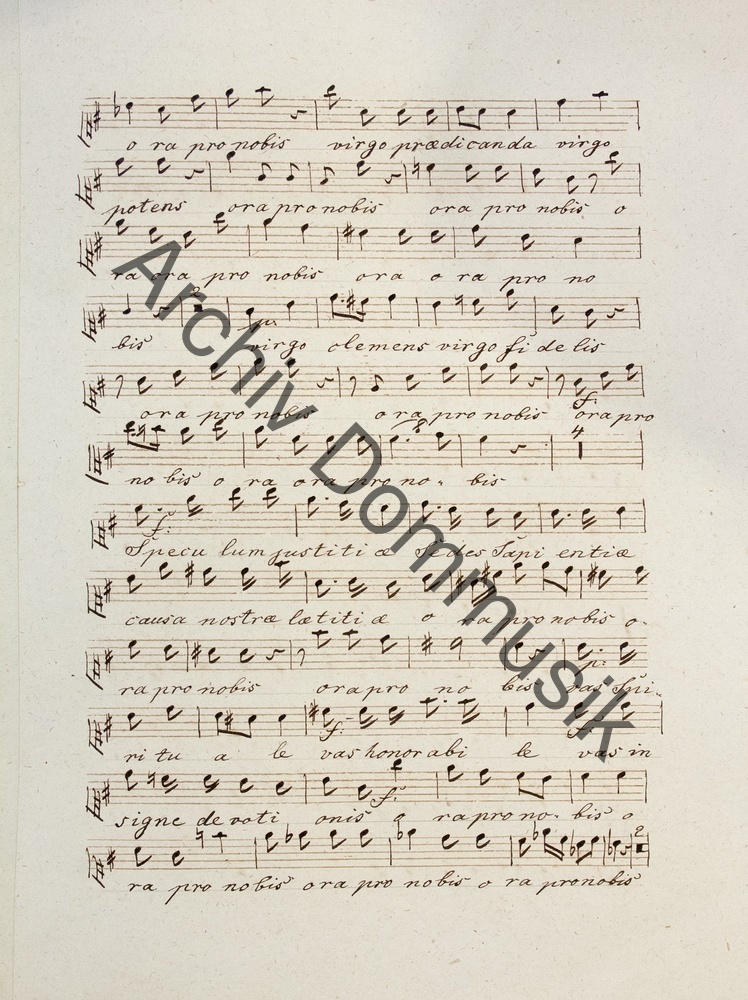 o ra pro nobis virgo prædicanda virgo
potens ora pro nobis ora pro nobis o
ra ora pro nobis ora o ra pro no
p:
bis virgo clemens virgo fi de lis
f:
ora pro nobis ora pro nobis ora pro
4
no bis o ra ora pro no - bis
f:
Specu lum justiti æ Sedes Sapi entiæ
causa nostræ lætiti æ o ra pro nobis o -
p:
ra pro nobis ora pro no bis vas Spi -
f:
ri tu a le vas honor abi le vas in
f:
signe de voti onis o ra pro no - bis o
2
ra pro nobis ora pro nobis o ra pro nobis
Archiv Dommusik